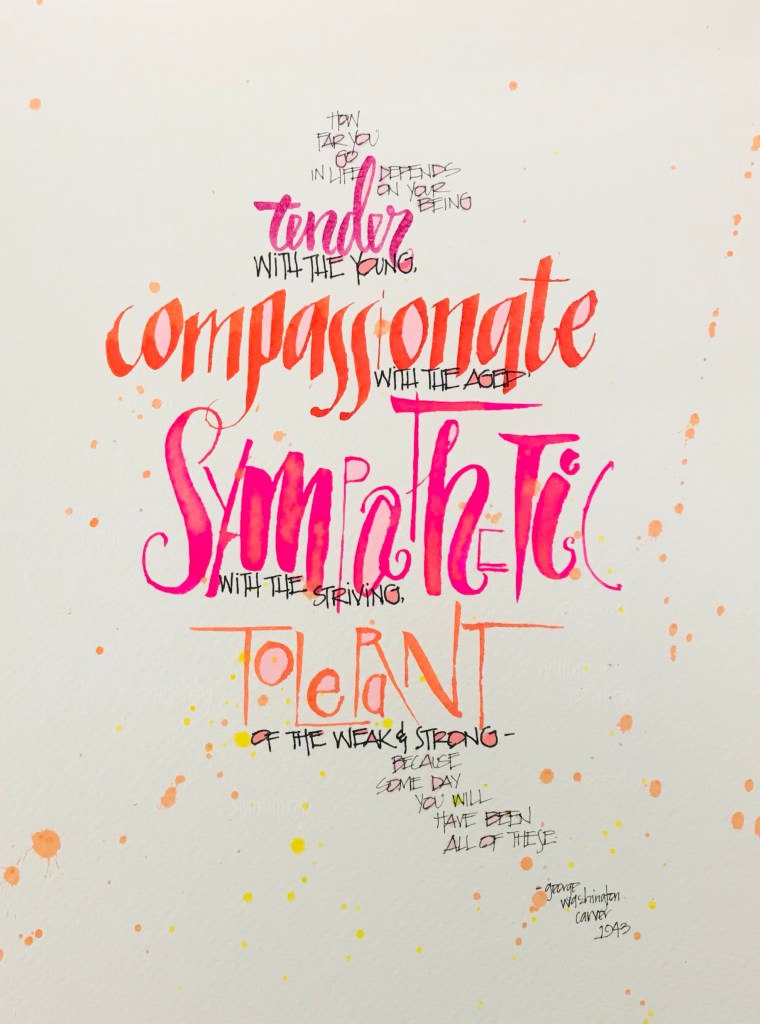 HOW
FAR YOU
GO
IN LIFE DEPENDS
ON YOUR
BEING
tender
WITH THE YOUNG,
compassionate
WITH THE AGED,
SYMPATHETIC
WITH THE STRIVING,
TOLERANT
OF THE WEAK & STRONG -
BECAUSE
SOME DAY
YOU WILL
HAVE BEEN
ALL OF THESE
- george
washington
carver
1943